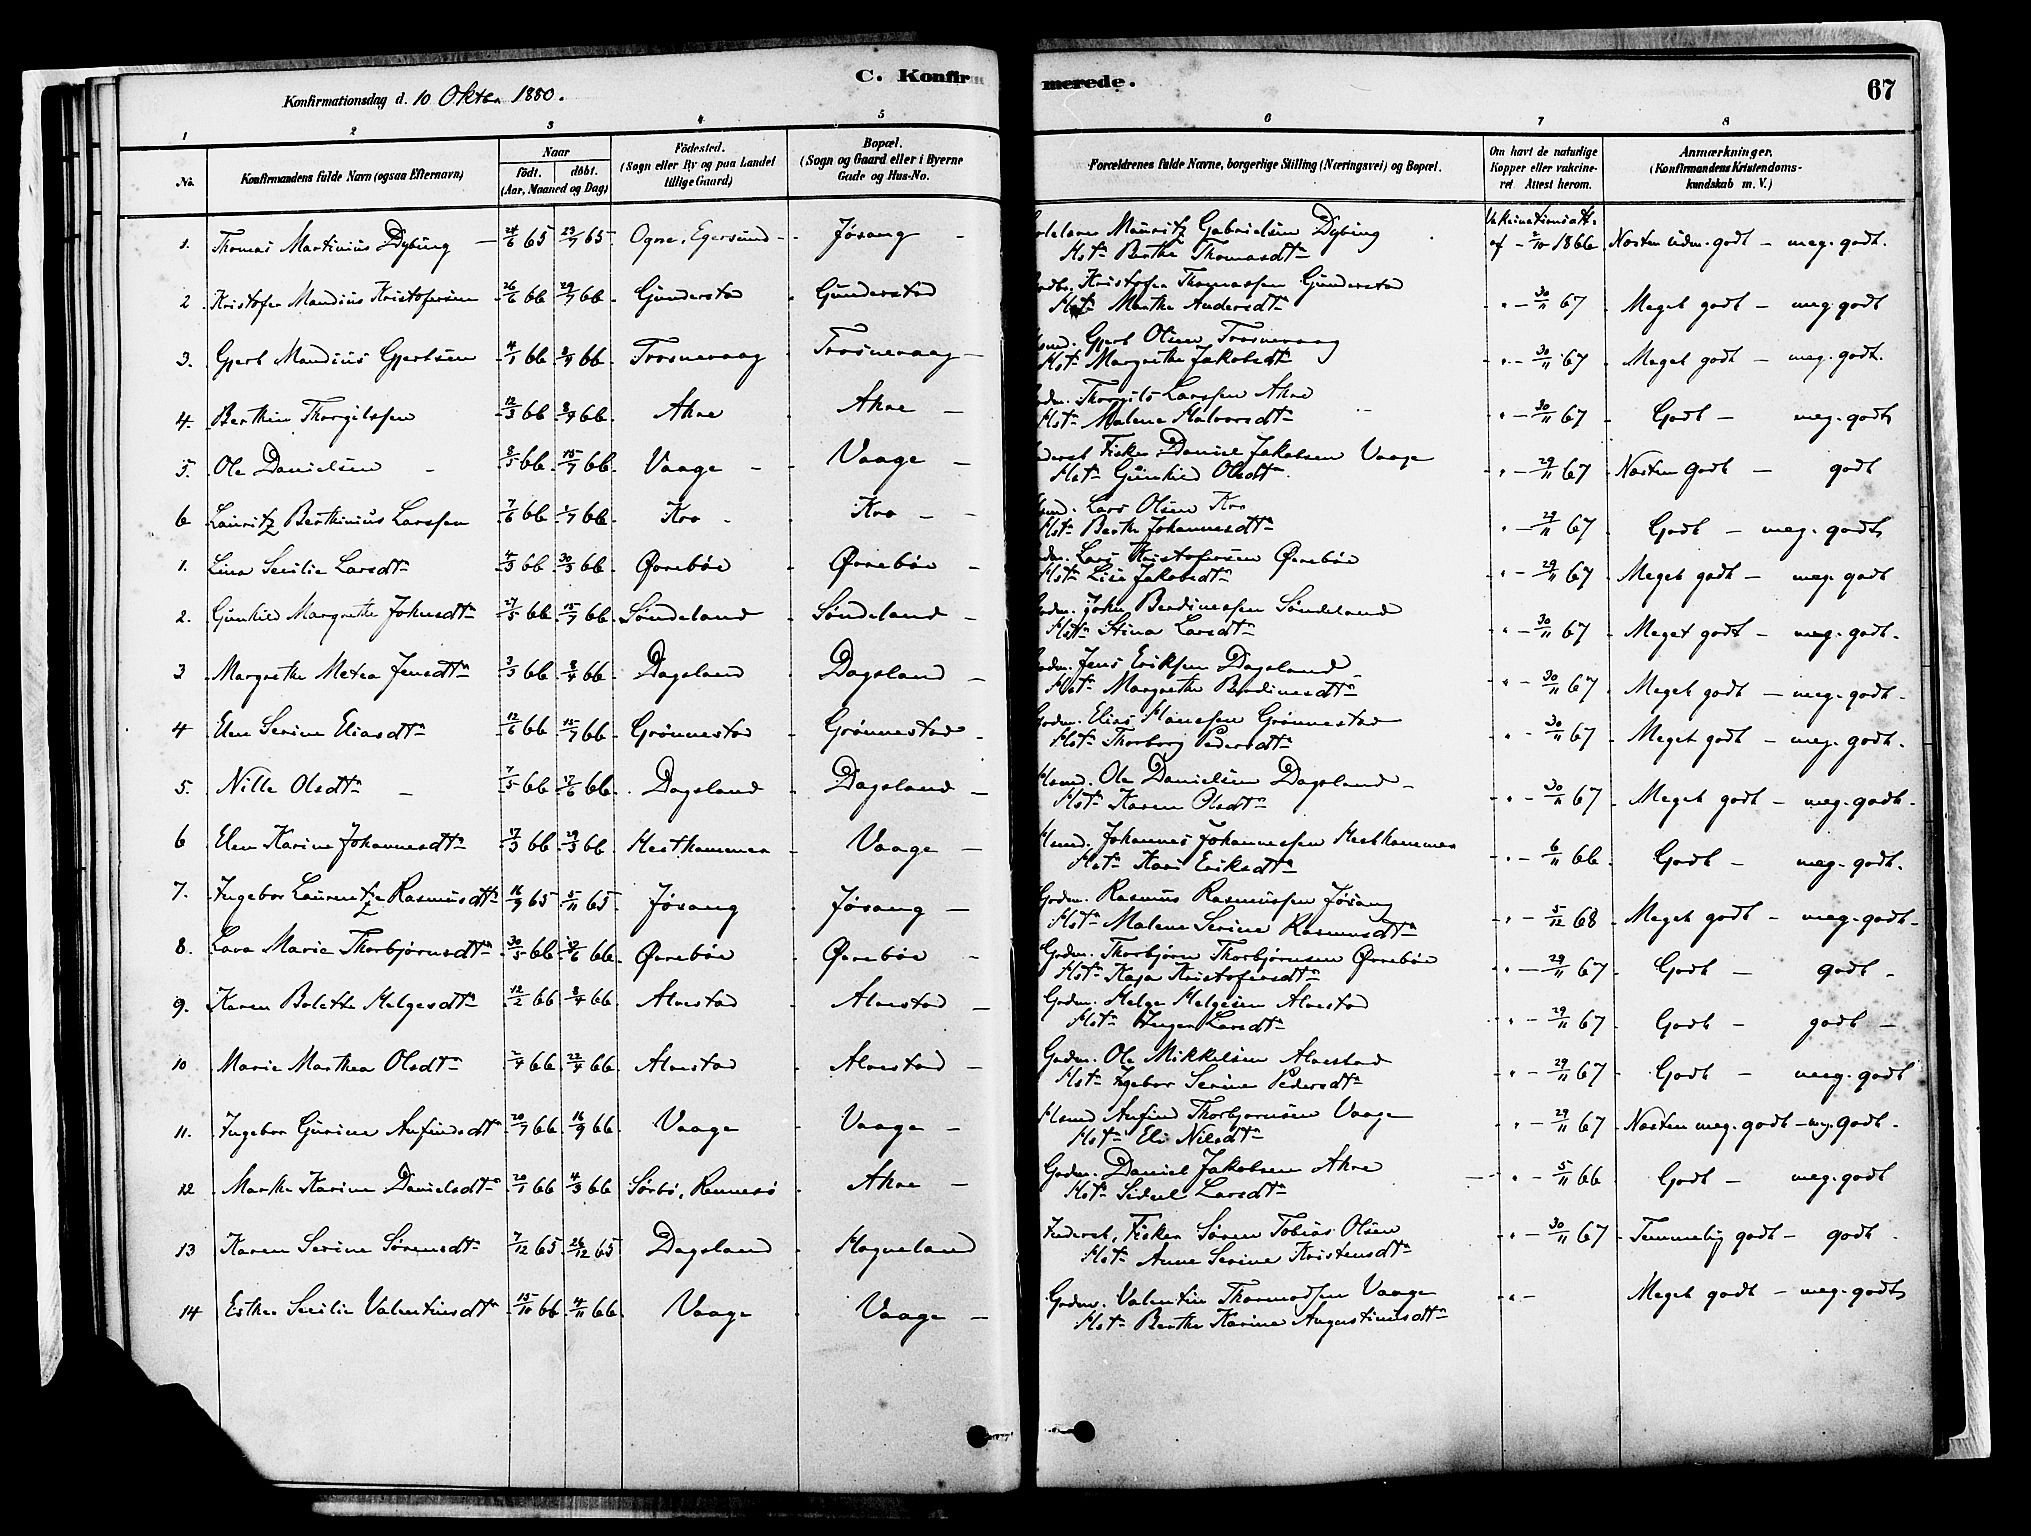 C. Konfirmerede.
67
Konfirmationsdag d. 10 Oktbr. 1880.
1 2 3 4 5 6 7 8
No. Konfirmandens fulde Navn (ogsaa Efternavn) Naar født. døbt. (Aar, Maaned og Dag) Fødested. (Sogn eller By og paa Landet tillige Gaard) Bopæl. (Sogn og Gaard eller i Byerne Gade og Hus-No. Forældrenes fulde Navne, borgerlige Stilling (Næringsvei) og Bopæl. Om havt de naturlige Kopper eller vakcineret Attest herom. Anmærkninger. (Konfirmandens Kristendomskundskab m. V.)
1. Thomas Martinius Dybing 24/6 65 23/7 65 Ogne, Egersund Jøsang Mauritz Gabrielsen Dybing Vakcinationsatt.
Hst. Berthe Thomasdtr af 2/10 1866 Næsten udm. godt - meg. godt.
2 Kristofer Mandius Kristofersen 26/6 66 29/7 66 Gunderstad Gunderstad Kristofer Thomassen Gunderstad
Hst. Marthe Andersdtr " - 30/11 67 Meget godt - meg. godt
3. Gjert Mandius Gjertsen 4/1 66 2/4 66 Trosnevaag Trosnevaag Gjert Olsen Trosnevaag
Hst. Margrethe Jakobsdtr " - 30/11 67 Meget godt - meg. godt.
4. Berthin Thorgilssen 12/3 66 2/4 66 Ahre Ahre Thorgils Larssen Ahre
Hst. Malene Halvorsdtr " - 30/11 67 Godt - meg. godt
5. Ole Danielsen 8/5 66 15/7 66 Vaage Vaage Fisker Daniel Jakobsen Vaage
Hst. Gunhild Olsdtr " - 29/11 67 Næsten godt - godt
6 Lauritz Berthinius Larssen 7/6 66 1/7 66 Kro Kro Lars Olsen Kro
Hst. Berthe Johannesdtr " - 29/11 67 Godt - meg. godt
1. Lina Secilie Larsdtr 4/3 66 30/3 66 Ørrebøe Ørrebøe Lars Kristofersen Ørrebøe
Hst. Lise Jakobsdtr " - 29/11 67 Meget godt - meg. godt
2. Gunhild Margrethe Johnsdtr 27/5 66 15/7 66 Søndeland Søndeland John Berdinessen Søndeland
Hst. Stina Larsdtr " - 30/11 67 Meget godt - meg. godt.
3 Margrethe Metea Jensdtr 3/3 66 8/4 66 Dagsland Dagsland Jens Eriksen Dagsland
Hst. Margrethe Berdinesdtr " - 30/11 67 Meget godt - meg. godt.
4 Elen Serine Eliasdtr 12/6 66 15/7 66 Grønnestad Grønnestad Grdm. Elias Hanssen Grønnestad
Hst. Thorborg Pedersdtr " - 30/11 67 Meget godt - meg. godt.
5. Nille Olsdtr 7/5 66 17/6 66 Dagsland Dagsland Hsmd. Ole Danielsen Dagsland
Hst. Karen Olsdtr " - 30/11 67 Meget godt - meg. godt.
6 Elen Karine Johannesdtr 17/3 66 29/3 66 Hesthammer Vaage Hsmd. Johannes Johannessen Hesthammer
Hst. Kari Eriksdtr " - 6/11 66 Godt - meg. godt.
7. Ingebor Laurentze Rasmusdtr 16/9 65 5/11 65 Jøsang Jøsang Grdm. Rasmus Rasmussen Jøsang
Hst. Malene Serine Rasmusdtr " - 5/12 68 Meget godt - meg. godt.
8. Lava Marie Thorbjørnsdtr 30/5 66 17/6 66 Ørrebøe Ørrebøe Grdm. Thorbjørn Thorbjørnsen Ørrebøe
Hst. Kaja Kristofersdtr " - 29/11 67 Godt - godt -
9. Karen Bolette Helgesdtr 12/2 66 8/4 66 Alvestad Alvestad Grdm. Helge Helgesen Alvestad
Hst. Inger Larsdtr " - 29/11 67 Godt - godt -
10 Marie Marthea Olsdtr 2/4 66 22/4 66 Alvestad Alvestad Grdm. Ole Mikkelsen Alvestad
Hst. Ingebor Serine Pedersdtr " - 29/11 67 Godt - meg. godt
11. Ingebor Gurine Anfindsdtr 20/7 66 16/9 66 Vaage Vaage Hsmd Anfind Thorbjørnsen Vaage
Hst. Eli Nilsdtr " - 29/11 67 Næsten meg. godt - mg. godt.
12 Marthe Karine Danielsdtr 20/1 66 4/3 66 Sørbø, Rennesø Ahre Grdm. Daniel Jakobsen Ahre
Hst. Sidsel Larsdtr " - 5/11 66 Godt - meg. godt
13 Karen Serine Sørensdtr 7/12 65 26/12 65 Dagsland Hogneland Inderst, Fisker Søren Tobias Olsen
Hst. Anne Serine Kristensdtr " - 30/11 67 Temmelig godt - godt.
14 Esther Secilie Valentinsdtr 15/10 66 4/11 66 Vaage Vaage Grdm. Valentin Thormodsen Vaage
Hst. Berthe Karine Augustinusdtr " - Meget godt - meg. godt